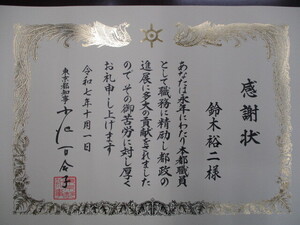 感謝状
鈴木裕二様
あなたは永年にわたり本都職員
として職務に精励し都政の
進展に多大の貢献をされました
ので その御苦労に対し厚く
お礼申し上げます
令和七年十月一日
東京都知事 小池百合子